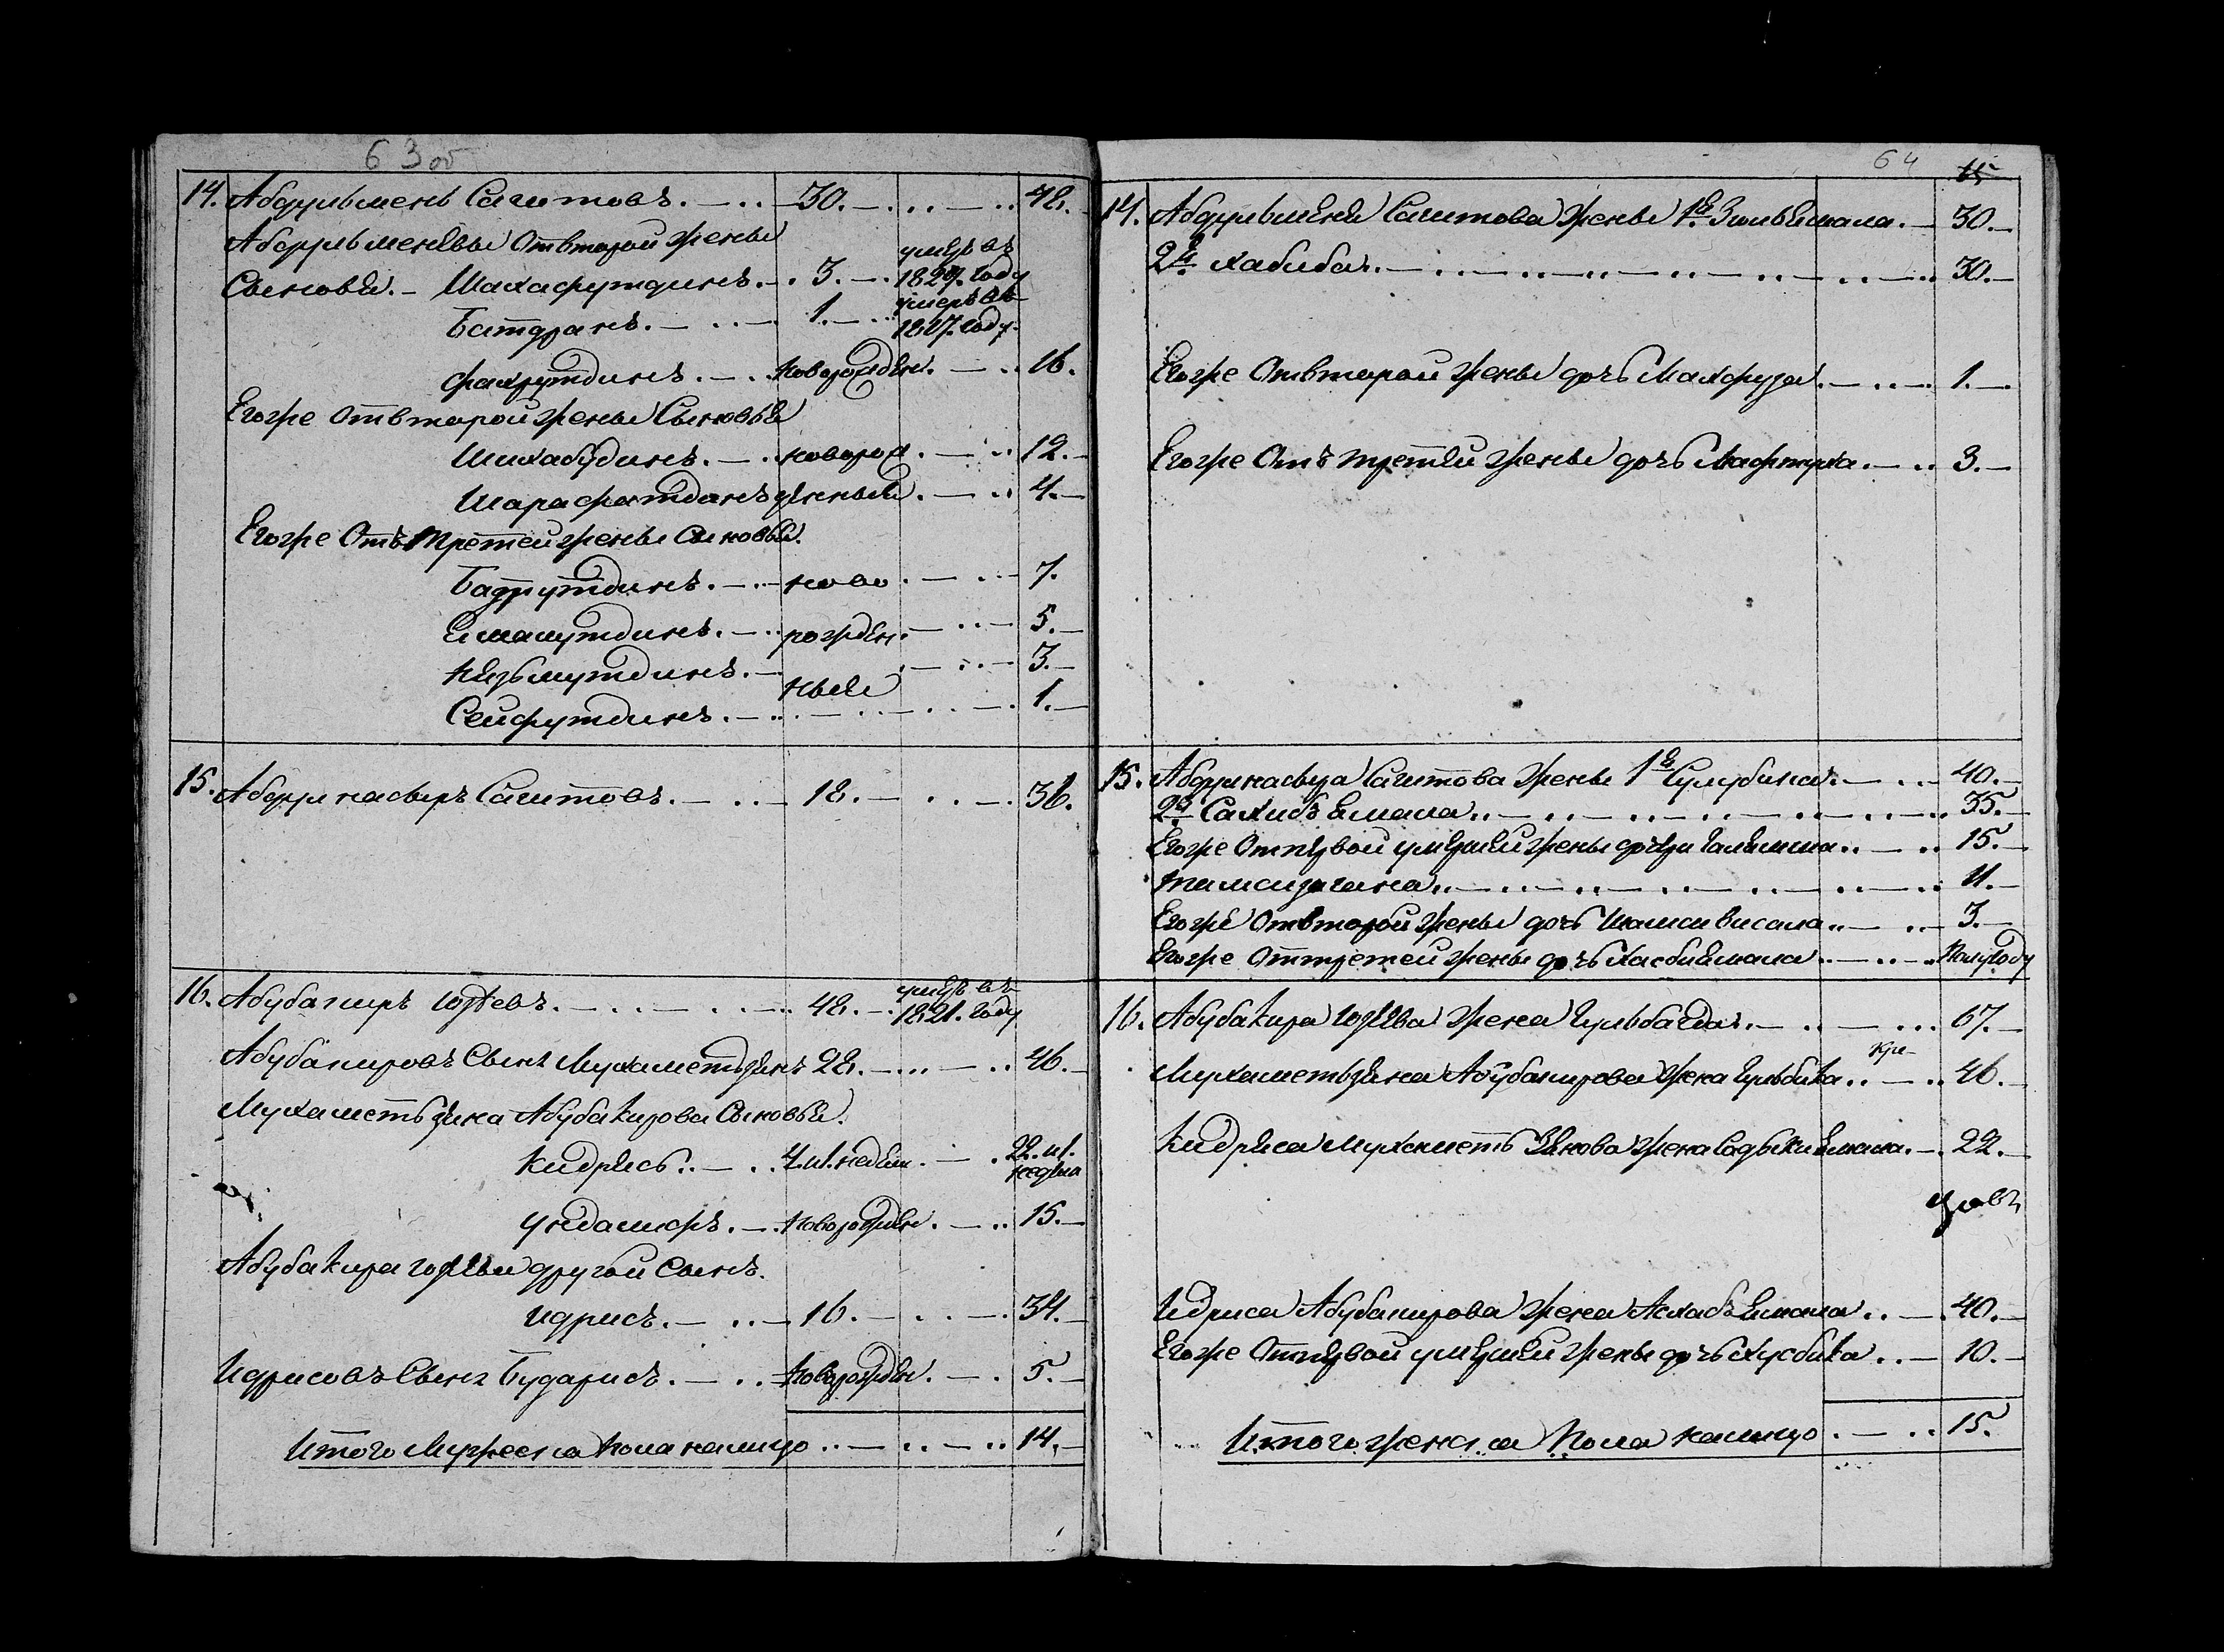 63 об
14. Абдульмень Сагитовъ. 30. 48.
Абдульменевы отвторой жены
Сыновья. Шахафутдинъ. 3. умеръ въ 1829. году
Батдранъ. 1. умеръ въ 1827. году.
Фахрутдинъ. новорожден. 16.
Егоже отвторой жены Сыновья
Шихабудинъ. новорож 12.
Шарафатдинъ денныя. 4.
Егоже Отъ третей жены Сыновья.
Бадрутдинъ. ново 7.
Еимамутдинъ. рожден. 5.
Незьмутдинъ. 3.
ные
Сейфутдинъ. 1.
15. Абдулнасыръ Сагитовъ. 18. 36.
16. Абубакиръ Юзеевъ. 48. умеръ въ 1821. году
Абубакировъ Сынъ Мухаметьзянъ 28. 46.
Мухаметь зяна Абубакирова Сыновья.
Кидрясъ. 4. недели. 22. недели
Ундамсръ. Новорожден. 15.
Абубакира Юзеева другой Сынъ.
Идрисъ. 16. 34.
Идрисовъ Сынъ Бударисъ. Новорожден. 5.
Итого Мужеска пола налицо 14.
64
14. Абдульменя Сагитова жены 1я Зюльбямала. 30.
2я Хабиба. 30.
Егоже Отвторой жены дочь Махфуза. 1.
Егоже Отъ третей жены дочь Мафтуха. 3.
15. Абдулнасыра Сагитова жены 1я Сулубика. 40.
2я Сахибъ Ямала. 35.
Егоже Отпервой умершей жены дочери Галямша. 15.
Тамсизагана. 11.
Егоже Отвторой жены дочь Шамсивисала. 3.
Егоже Оттретей жены дочь Хасбиямала. Полугоду
16. Абубакира Юзеева жена Гульбагда. 67.
Мухаметьзяна Абубакирова жена Гульбика. 46.
Кидряса Мухаметь Зянова жена Садыкиямала. 22.
Идриса Абубакирова жена Асхабъ Ямала. 40.
Егоже Отпервой умершей жены дочь Хусбика. 10.
Итого женска Пола налицо. 15.